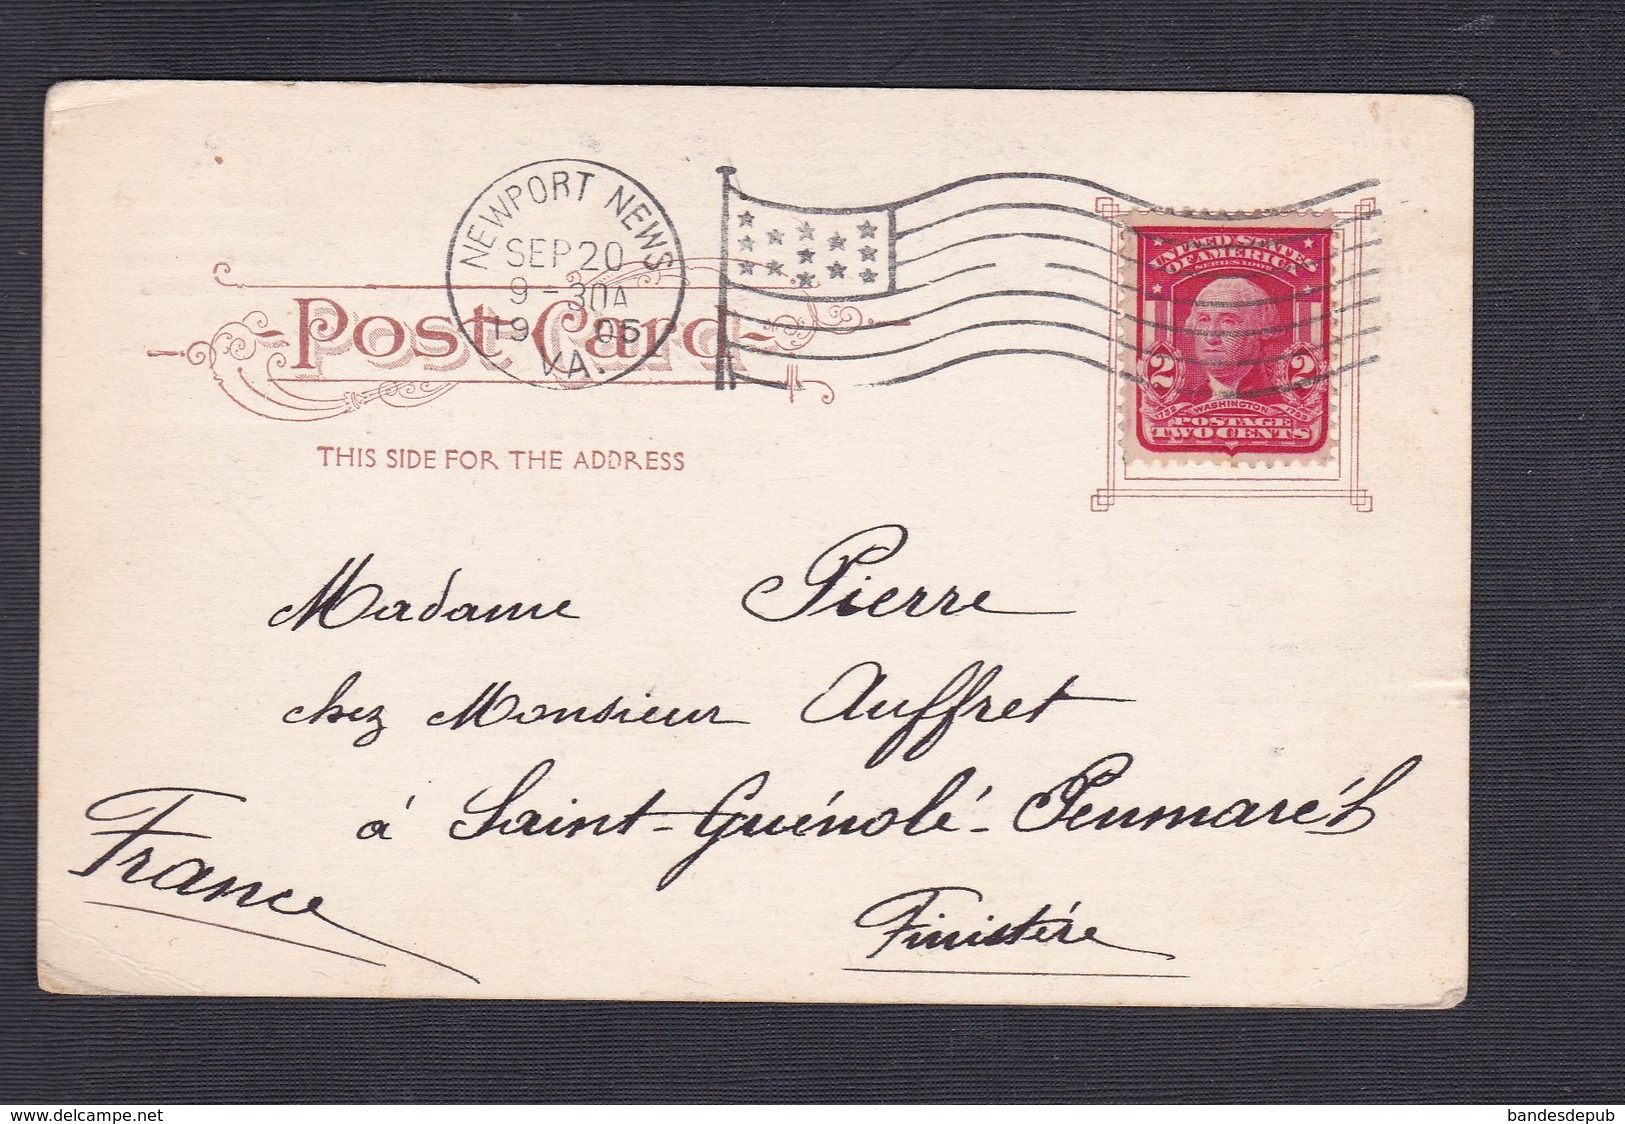 NEWPORT NEWS
SEP 20
9-30A
1905
VA.
UNITED STATES
OF AMERICA
SERIES 1902
2 2
1732 WASHINGTON 1799
POSTAGE
TWO CENTS
Post Card
THIS SIDE FOR THE ADDRESS
Madame Pierre
chez Monsieur Auffret
à Saint-Guénolé-Penmarc'h
Finistère
France
www.delcampe.net
bandesdepub